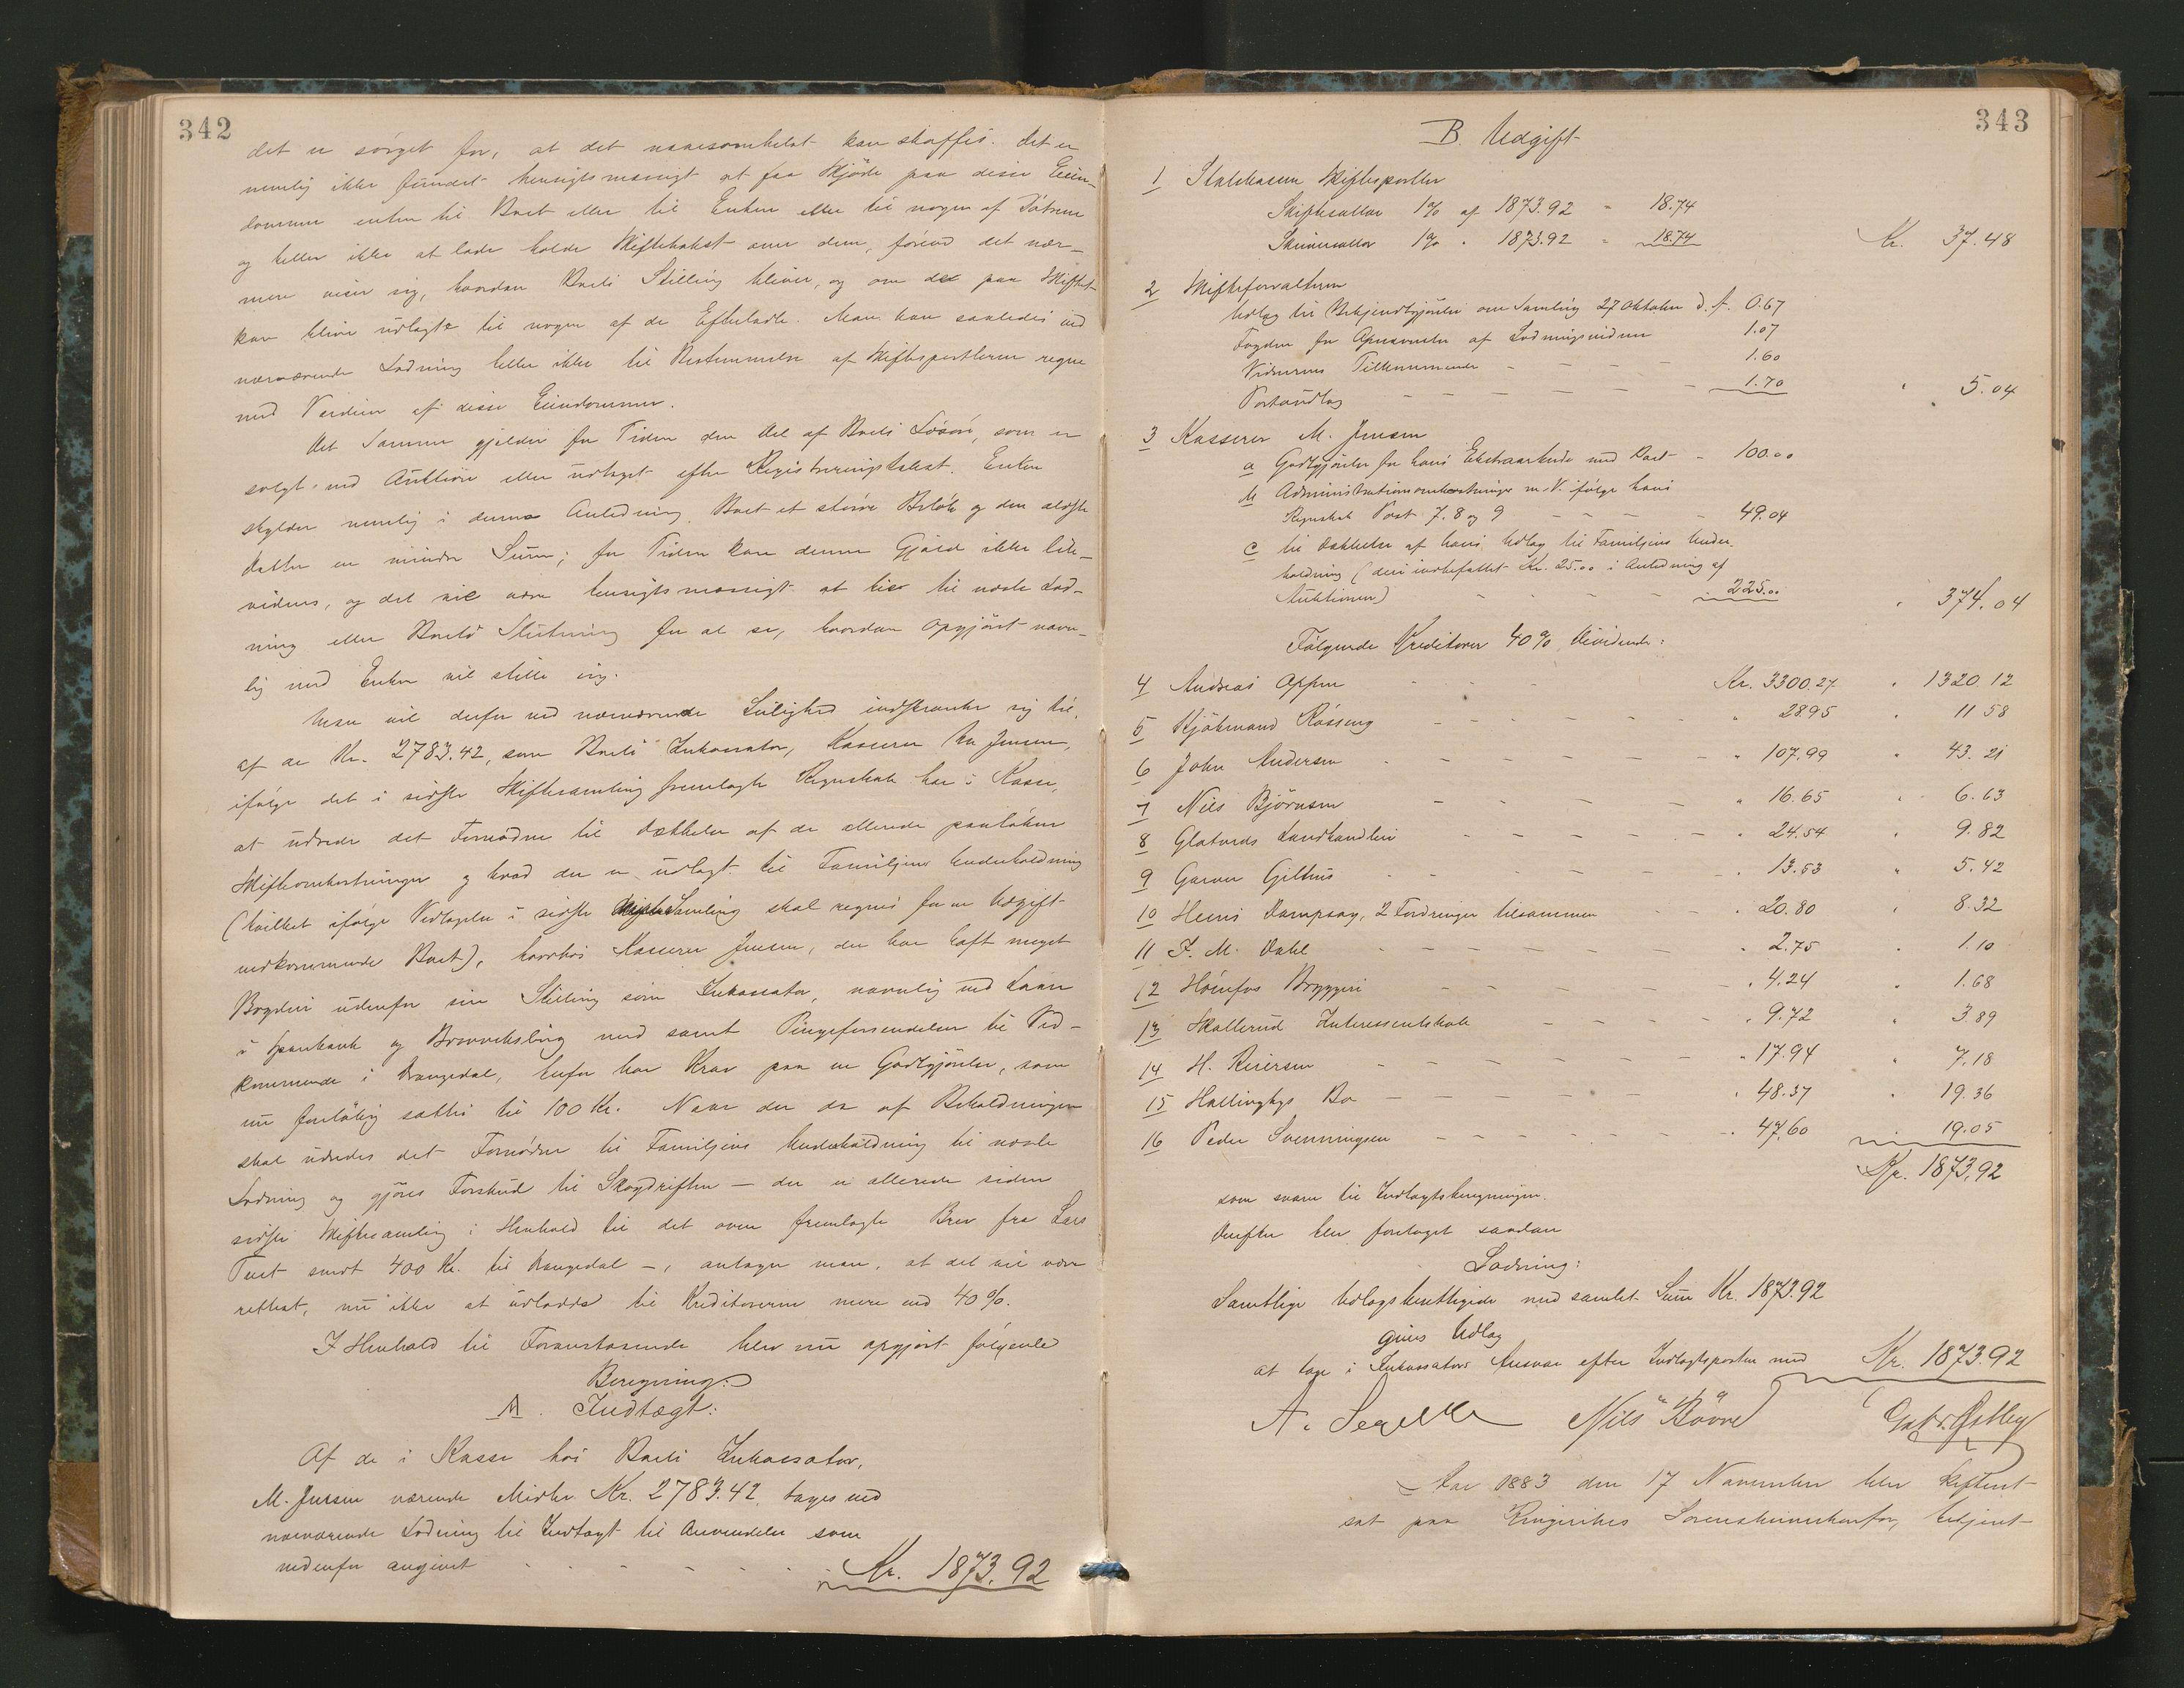 342
det er sørget for, at det naarsomhelst kan skaffes. Det er
nemlig ikke fundet hensigtsmæssigt at faa Skjøde paa disse Eien-
domme enten til Boet eller til Enken eller til nogen af Døtrene
og heller ikke at lade holde Skiftetakst over dem, førend det nær-
mere viser sig, hvordan Boets Stilling bliver, og om de paa Skiftet
kan blive udlagte til nogen af de Efterladte. Man kan saaledes ved
nærværende Lodning heller ikke til Bestemmelse af Skiftesportlerne regne
med Verdien af disse Eiendomme.
Det Samme gjelder for Tiden den Del af Boets Løsøre, som er
solgt ved Auktion eller udtaget efter Registreringstakst. Enken
skylder nemlig i denne Anledning Boet et større Beløb og den ældste
Datter en mindre Sum; for Tiden kan denne Gjæld ikke lik-
videres, og det vil være hensigtsmæssigt at til næste Lod-
ning eller Boets Slutning for at se, hvordan Opgjøret navn-
lig med Enken vil stille sig.
Man vil derfor ved nærværende Leilighed indskrænke sig til,
af de Kr. 2783.42, som Boets Inkassator, Kasserer M. Jensen,
ifølge det i sidste Skiftesamling fremlagte Regnskab har i Kasse,
at udrede det Fornødne til Dækkelse af de allerede paaløbne
Skifteomkostninger og hvad der er udlagt til Familjens Underholdning
(hvilket ifølge Vedtagelse i sidste Samling skal regnes for en Udgift
vedkommende Boet), hvorhos Kasserer Jensen, der har haft meget
Bryderi udenfor sin Stilling som Inkassator, navnlig ved Laan
i Sparebank og Brevveksling med samt Pengeforsendelser til Ved-
kommende i Drangedal, herfor har Krav paa en Godtgjørelse, som
nu foreløbig sættes til 100 Kr. Naar der da af Beholdningen
skal udredes det Fornødne til Familjens Underholdning til næste
Lodning og gjøres Forskud til Skogdriften – der er allerede siden
sidste Skiftesamling i Henhold til det oven fremlagte Brev fra Lars
Tvet sendt 400 Kr. til Drangedal –, antager man, at det vil være
rettest, nu ikke at udlodde til Kreditorerne mere end 40 %.
I Henhold til Foranstaaende blev nu opgjort følgende
Beregning:
A. Indtægt:
Af de i Kasse hos Boets Inkassator,
M. Jensen værende Midler Kr. 2783.42, tages ved
nærværende Lodning til Indtægt til Anvendelse som
nedenfor angivet - - - - - Kr. 1873.92
343
B. Udgift
1 Statskassen Skiftesportler
Skifteskillær 1% af 1873.92 = 18.74
1% " 1873.92 = 18.74 Kr. 37.48
2 Skifteforvalteren
Udlag til Bekjendtgjørelse om Samling 27 Oktober d. A. 0.67
Fogden for Opnævnelse af Lodningsvidner 1.07
Vidnernes Tilkommende - - - - 1.60
Portoudlæg - - - - - 1.70 " 5.04
3 Kasserer M. Jensen
a Godtgjørelse for hans Ekstraarbeide med Boet - 100.00
b Administrationsomkostninger m. V. ifølge hans
Regnskab Post 7, 8 og 9 - - - - 49.04
c til Dækkelse af hans Udlæg til Familjens Under-
holdning (deri indbefattet Kr. 25.00 i Anledning af
Auktionen) - - - - - 225.00 " 374.04
Følgende Kreditorer 40% Dividende:
4 Andreas Oppen - - - Kr. 3300.27 " 1320.12
5 Hjøkmand Røsseng - - - - - " 28.95 " 11.58
6 John Andersen - - - - - - " 107.99 " 43.21
7 Nils Bjørnsen - - - - - " 16.65 " 6.63
8 Glatveds Landhandleri - - - - - " 24.54 " 9.82
9 Garver Gilhus - - - - - - " 13.53 " 5.42
10 Heens Dampsag, 2 Fordringer tilsammen - - " 20.80 " 8.32
11 F. M. Dahl - - - - - - " 2.75 " 1.10
12 Hønefos Bryggeri - - - - - " 4.24 " 1.68
13 Skollerud Interessentskab - - - - " 9.72 " 3.89
14 H. Reiersen - - - - - - " 17.94 " 7.18
15 Hallingbys Bo - - - - - - " 48.37 " 19.36
16 Peder Svenningsen - - - - - - " 47.60 " 19.05
Kr. 1873.92
som svarer til Indtægtsberegningen.
Derefter blev foretaget saadan
Lodning:
Samtlige Udlægsberettigede med samlet Sum Kr. 1873.92
gives Udlæg
at tage i Inkassators Ansvar efter Indtægtsposten med Kr. 1873.92
Nils Bøvre
Aar 1883 den 17 November blev Skifteret
sat paa Ringerikes Sorenskriverkontor, betjent